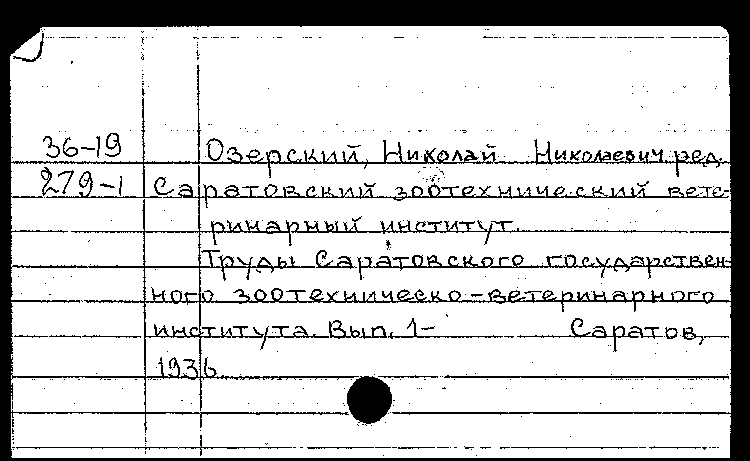 36-19 Озерский, Николай Николаевич ред.
279-1 Саратовский зоотехнический вете-
ринарный институт.
Труды Саратовского государствен-
ного зоотехническо-ветеринарного
института. Вып. 1- Саратов,
1936